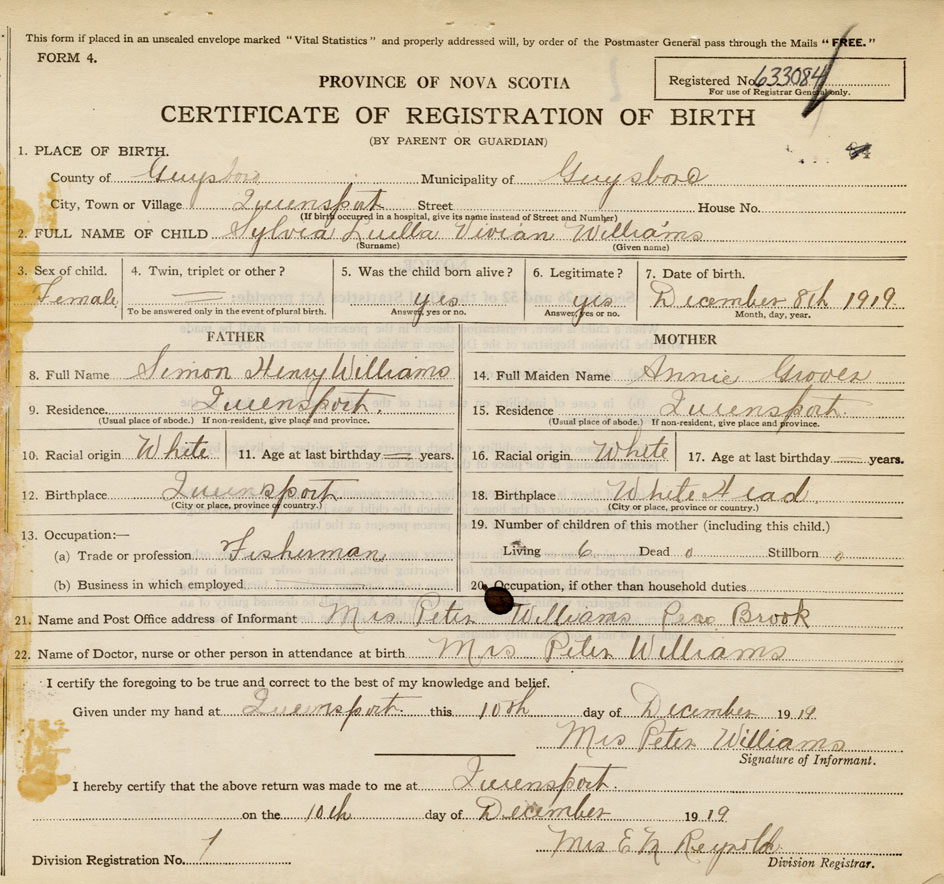 This form if placed in an unsealed envelope marked "Vital Statistics" and properly addressed will, by order of the Postmaster General pass through the Mails "FREE."
FORM 4.
PROVINCE OF NOVA SCOTIA
Registered No. 633084
For use of Registrar General only.
CERTIFICATE OF REGISTRATION OF BIRTH
(BY PARENT OR GUARDIAN)
1. PLACE OF BIRTH.
County of Guysboro Municipality of Guysboro
City, Town or Village Queensport Street House No.
(If birth occurred in a hospital, give its name instead of Street and Number)
2. FULL NAME OF CHILD Sylvia Luella Vivian Williams
(Surname) (Given name)
3. Sex of child. 4. Twin, triplet or other? 5. Was the child born alive? 6. Legitimate? 7. Date of birth.
Female yes yes December 8th 1919
To be answered only in the event of plural birth. Answer, yes or no. Answer, yes or no. Month, day, year.
FATHER MOTHER
8. Full Name Simon Henry Williams 14. Full Maiden Name Annie Grover
9. Residence. Queensport. 15. Residence Queensport.
(Usual place of abode.) If non-resident, give place and province. (Usual place of abode.) If non-resident, give place and province.
10. Racial origin White 11. Age at last birthday — years. 16. Racial origin White 17. Age at last birthday — years.
12. Birthplace Queensport 18. Birthplace White Head
(City or place, province or country.) (City or place, province or country.)
13. Occupation:— 19. Number of children of this mother (including this child.)
(a) Trade or profession Fisherman Living 6 Dead 0 Stillborn 0
(b) Business in which employed 20. Occupation, if other than household duties
21. Name and Post Office address of Informant Mrs Peter Williams Brook
22. Name of Doctor, nurse or other person in attendance at birth Mrs Peter Williams
I certify the foregoing to be true and correct to the best of my knowledge and belief.
Given under my hand at Queensport. this 10th day of December 1919
Mrs Peter Williams
Signature of Informant.
I hereby certify that the above return was made to me at Queensport.
on the 10th day of December 1919
Mrs E M Reynolds
Division Registration No. 1 Division Registrar.